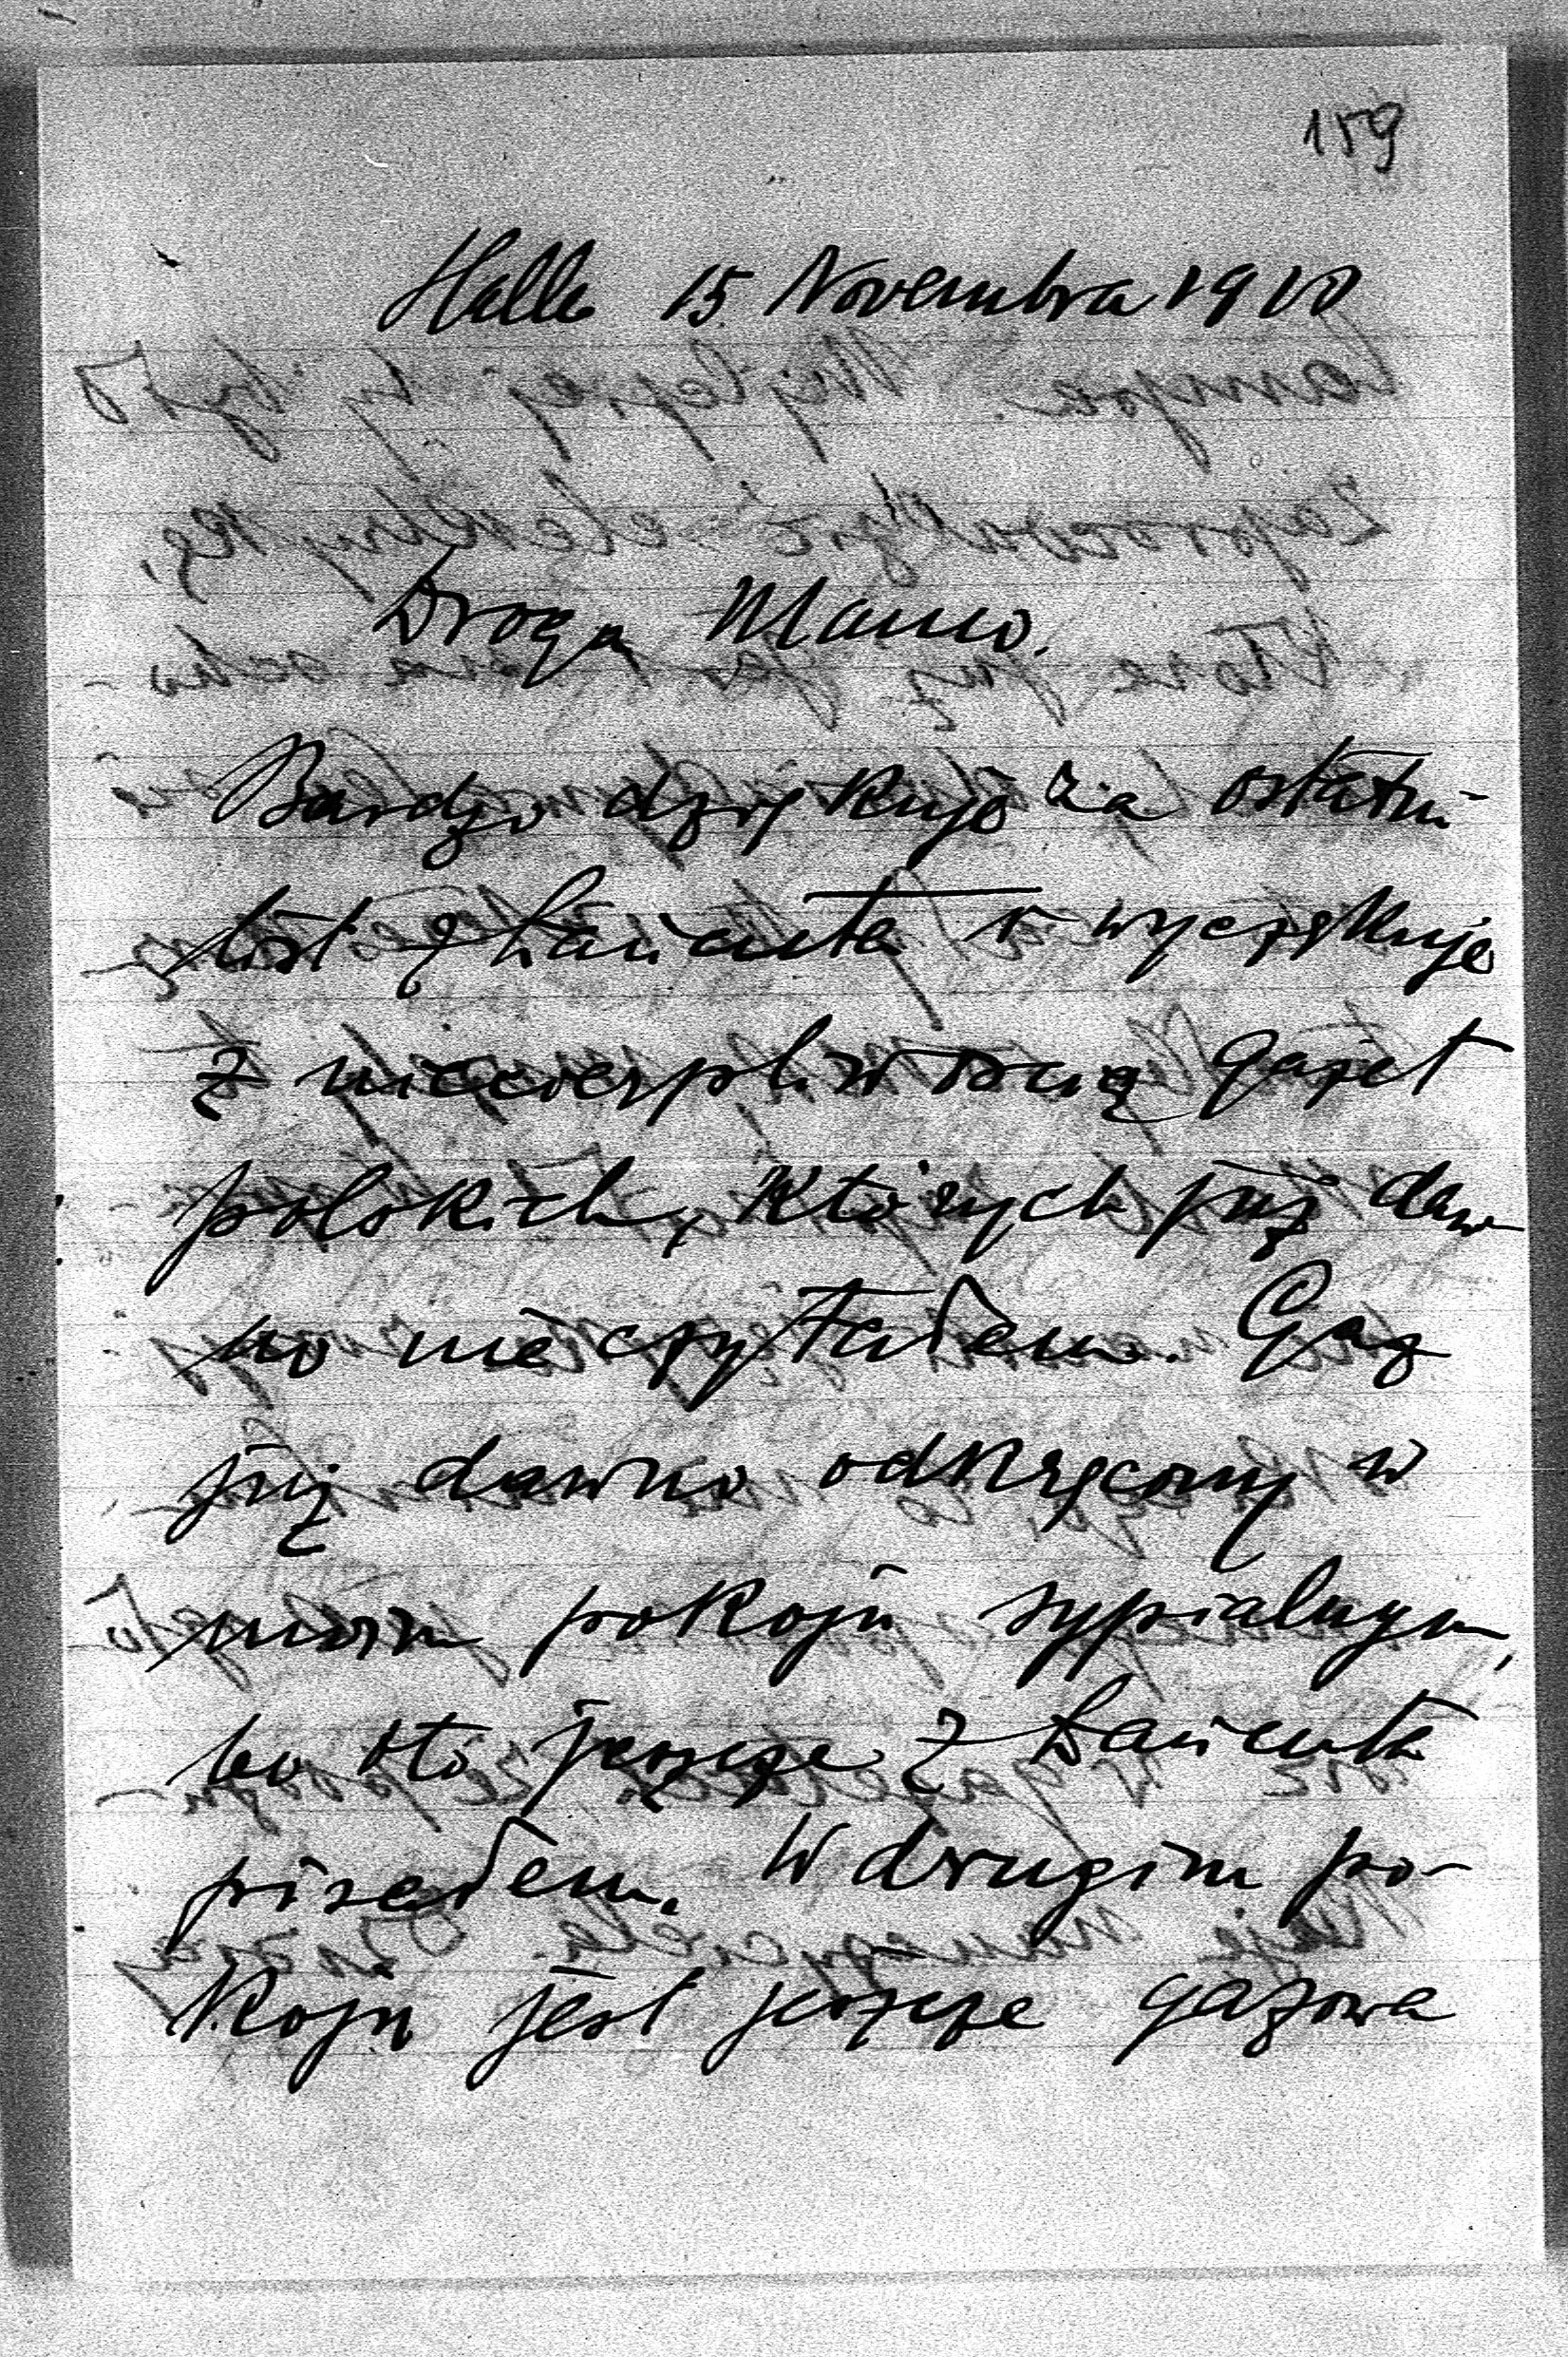 159
Halle 15 Novembra 1910
Droga Mamo.
Bardzo dziękuję za ostatni
list z Łańcuta i wyczekuję
z niecierpliwością gazet
polskich, których już daw
no nie czytałem. Gaz
już dawno odkręcony w
moim pokoju sypialnym,
bo oto jeszcze z Łańcuta
prisałem. W drugim po-
koju jest jeszcze gazowa